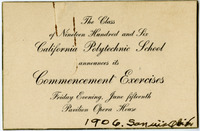 The Class
of Nineteen Hundred and Six
California Polytechnic School
announces its
Commencement Exercises
Friday Evening, June fifteenth
Pavilion Opera House
1906.